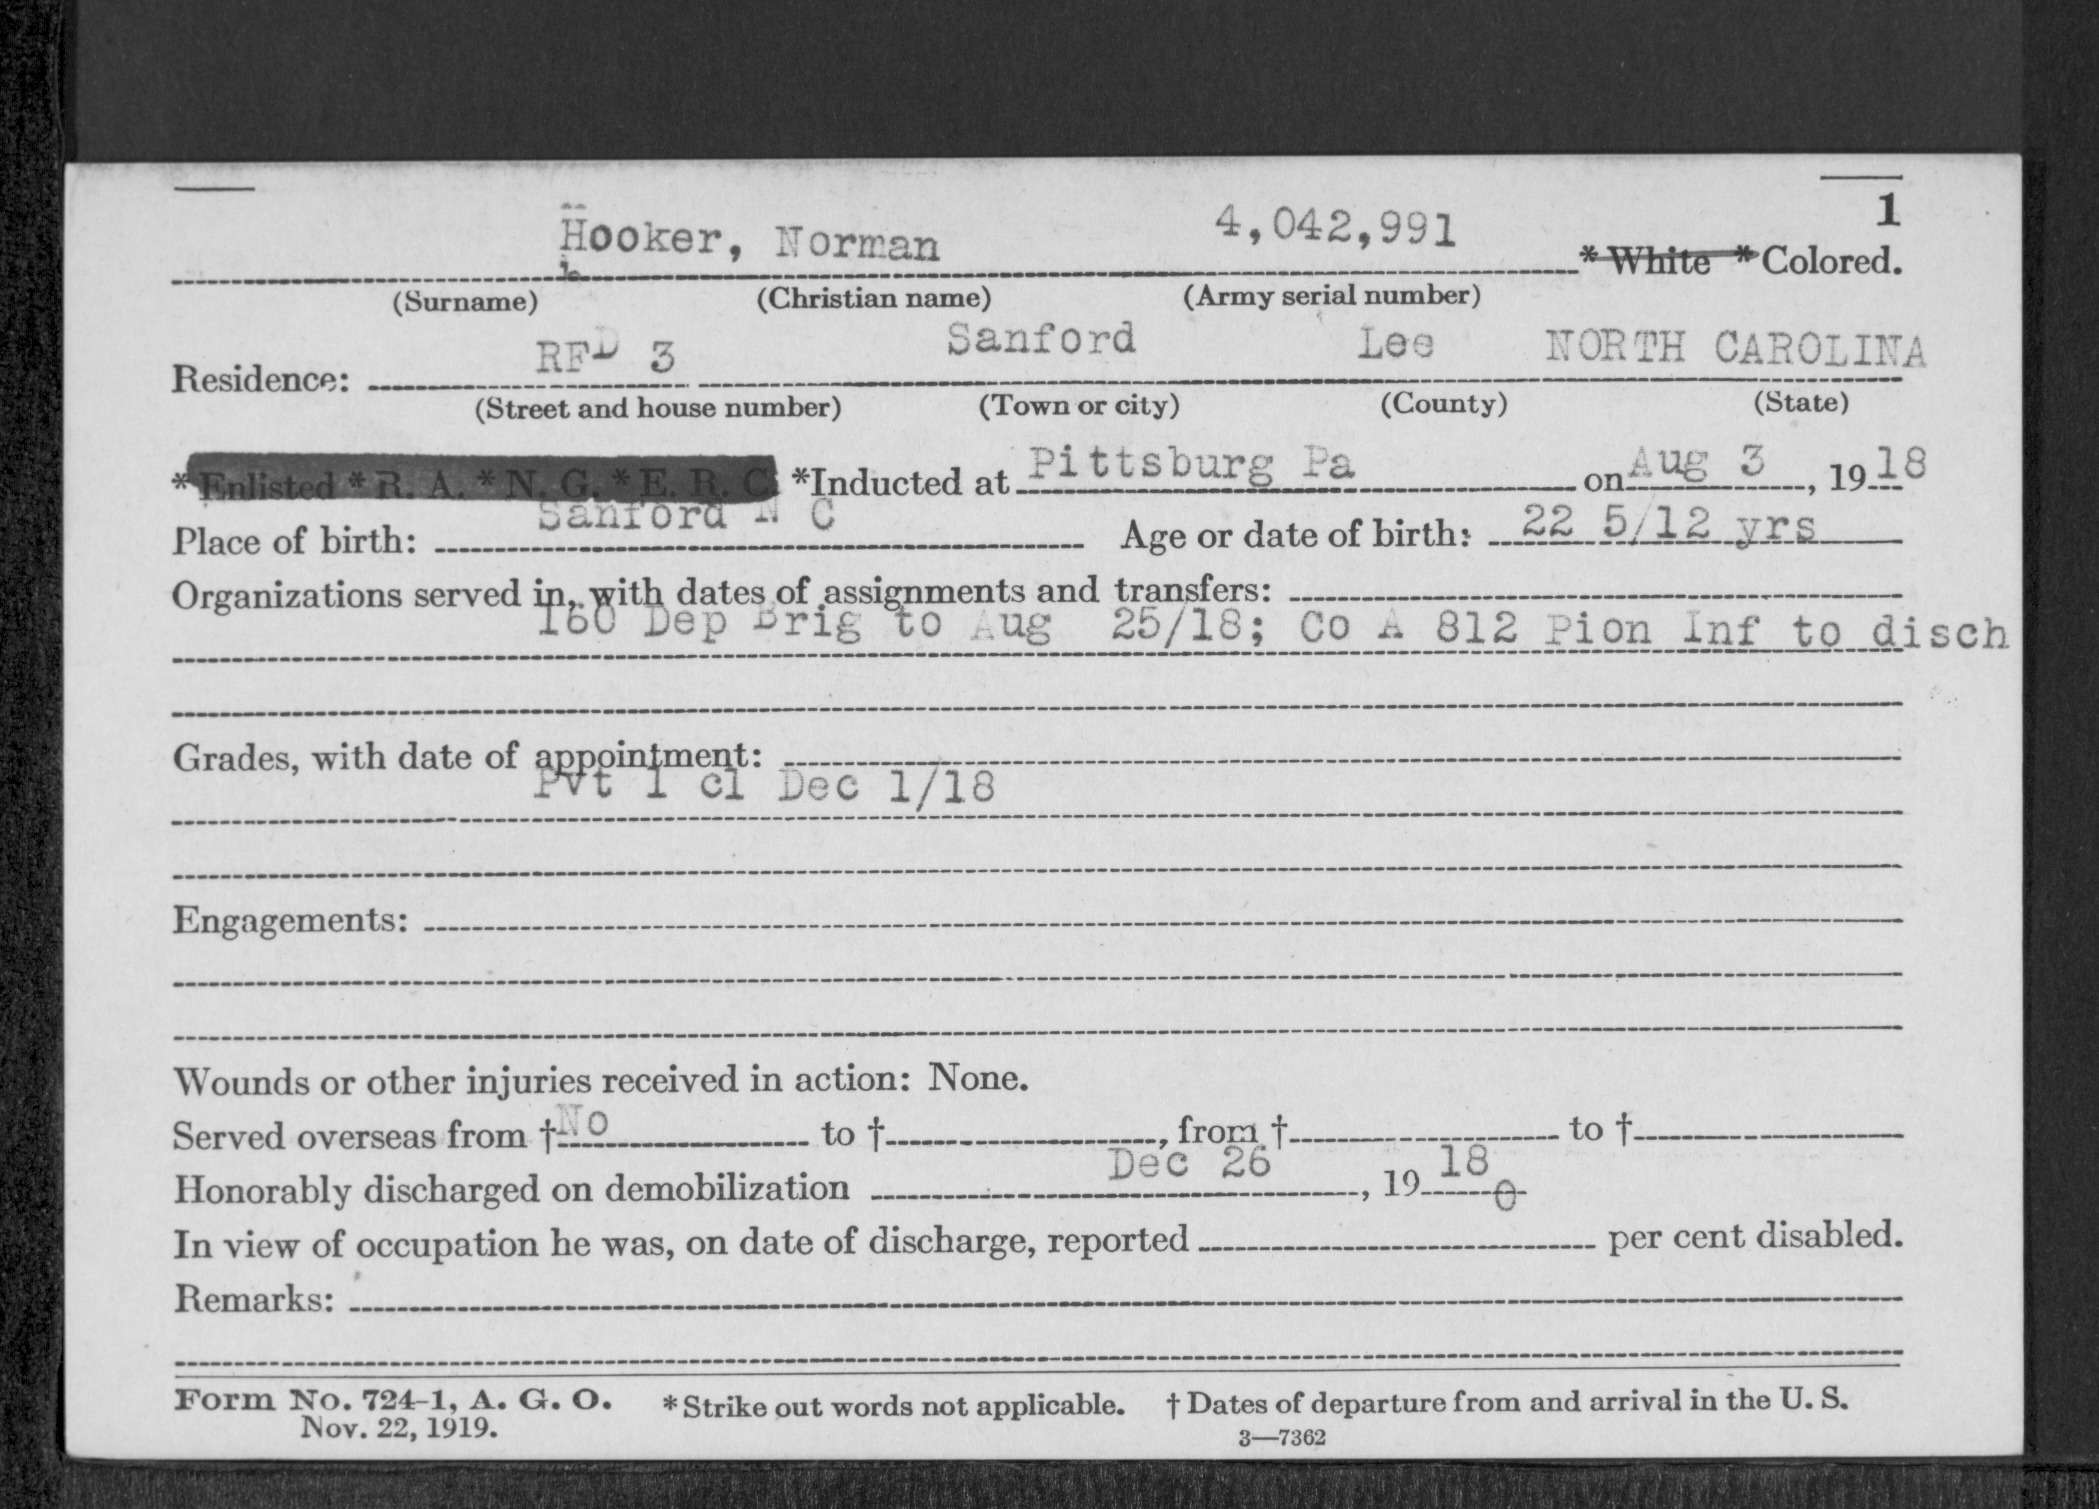 1
Hooker, Norman 4,042,991 * White * Colored.
(Surname) (Christian name) (Army serial number)
RFD 3 Sanford Lee NORTH CAROLINA
Residence:
(Street and house number) (Town or city) (County) (State)
* Enlisted * R. A. * N. G. * E. R. C. *Inducted at Pittsburg Pa on Aug 3, 1918
Place of birth: Sanford N C Age or date of birth: 22 5/12 yrs
Organizations served in, with dates of assignments and transfers:
160 Dep Brig to Aug 25/18; Co A 812 Pion Inf to disch
Grades, with date of appointment:
Pvt 1 cl Dec 1/18
Engagements:
Wounds or other injuries received in action: None.
Served overseas from † No to †, from † to †
Honorably discharged on demobilization Dec 26, 1918
0
In view of occupation he was, on date of discharge, reported per cent disabled.
Remarks:
Form No. 724-1, A. G. O. *Strike out words not applicable. † Dates of departure from and arrival in the U. S.
Nov. 22, 1919. 3—7362